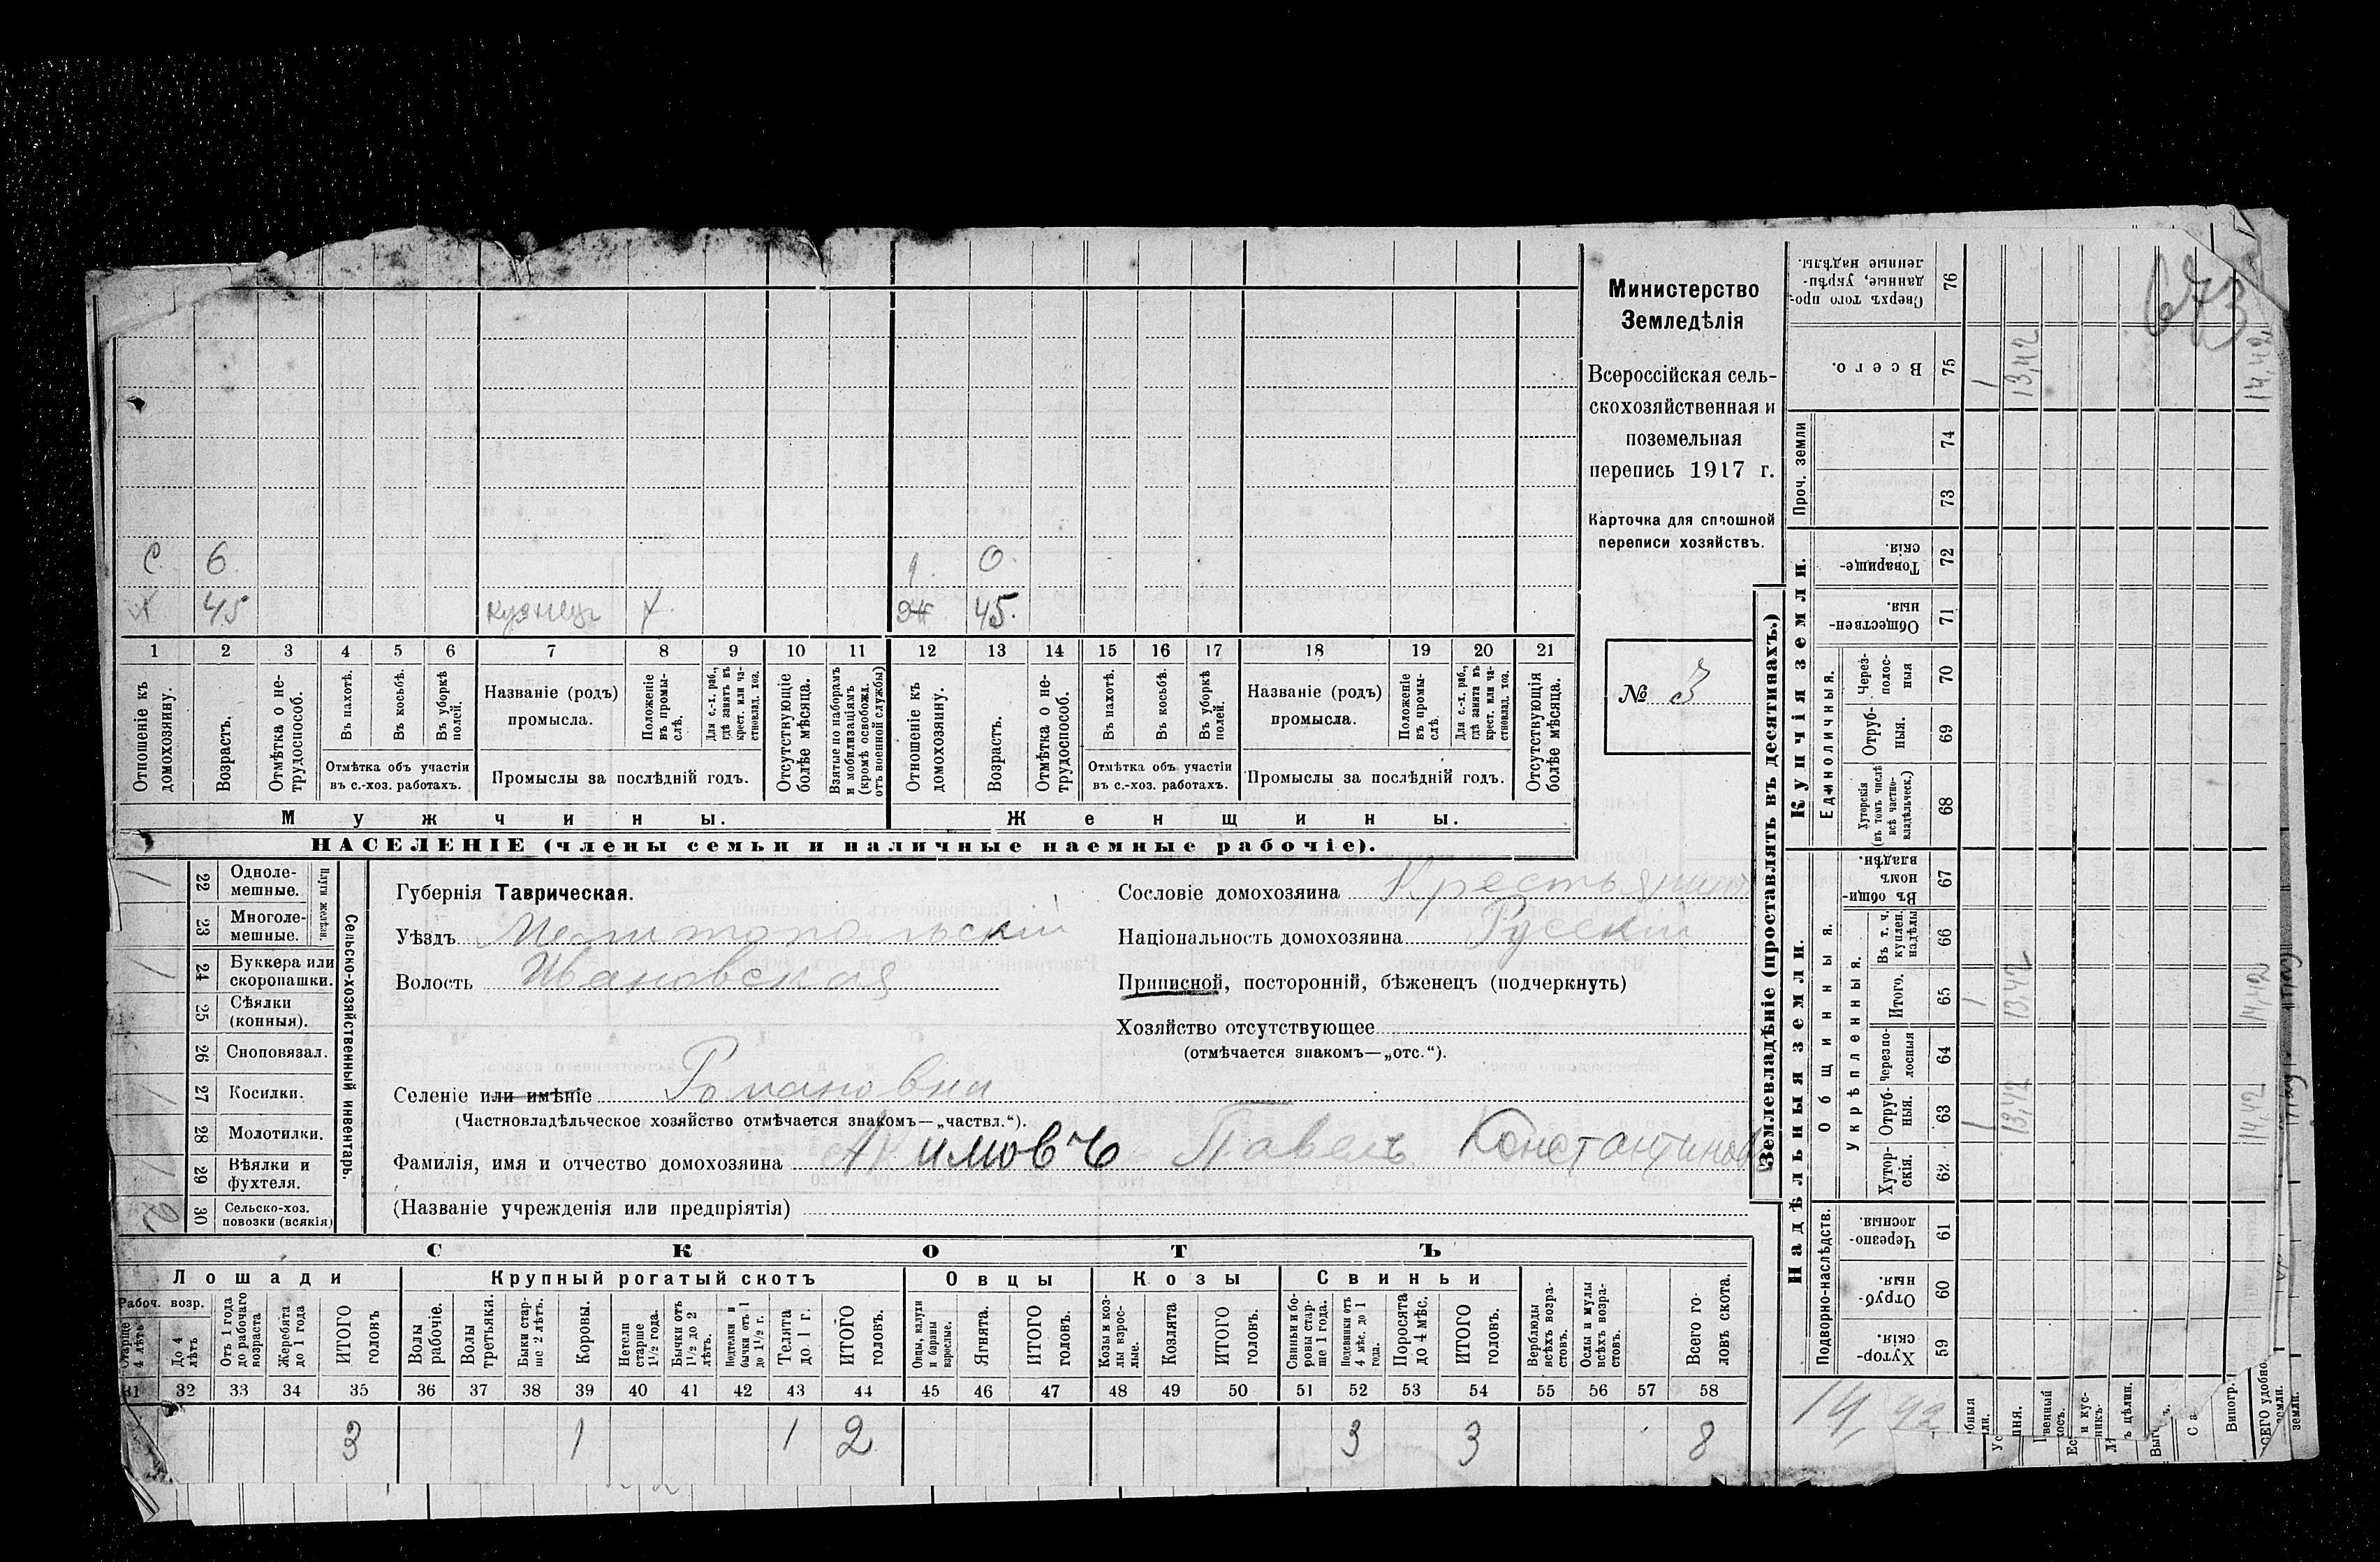 673
С. 6. 9. 0.
х 45 кузнецъ х. ж 45.
1 2 3 4 5 6 7 8 9 10 11 12 13 14 15 16 17 18 19 20 21
Отношеніе къ домохозяину.
Возрастъ.
Отмѣтка о не-трудоспособ.
Въ пахотѣ.
Въ косьбѣ.
Въ уборкѣ полей.
Отмѣтка объ участіи
въ с.-хоз. работахъ.
Названіе (родъ)
промысла.
Положеніе въ промы-слѣ.
Для с.-х. раб., гдѣ занятъ въ крест. или ча-стновлад. хоз.
Промыслы за послѣдній годъ.
Отсутствующіе болѣе мѣсяца.
Взятые по наборамъ и мобилизаціямъ (кромѣ освобожд. отъ военной службы)
Отношеніе къ домохозяину.
Возрастъ.
Отмѣтка о не-трудоспособ.
Въ пахотѣ.
Въ косьбѣ.
Въ уборкѣ полей.
Отмѣтка объ участіи
въ с.-хоз. работахъ.
Названіе (родъ)
промысла.
Положеніе въ промы-слѣ.
Для с.-х. раб., гдѣ занята въ крест. или ча-стновлад. хоз.
Промыслы за послѣдній годъ.
Отсутствующія болѣе мѣсяца.
Мужчины. Женщины.
НАСЕЛЕНІЕ (члены семьи и наличные наемные рабочіе).
Министерство
Земледѣлія
Всероссійская сель-
скохозяйственная и
поземельная
перепись 1917 г.
Карточка для сплошной
переписи хозяйствъ.
№ 3
Сельско-хозяйственный инвентарь.
Плуги желѣзн.
1 22 Одноле-мешные.
23 Многоле-мешные.
1 24 Буккера или скоропашки.
25 Сѣялки (конныя).
26 Сноповязал.
1 27 Косилки.
28 Молотилки.
1 29 Вѣялки и фухтеля.
2 30 Сельско-хоз. повозки (всякія)
Губернія Таврическая.
Уѣздъ Мелитопольскій
Волость Ивановская
Селеніе или имѣніе Романовка
(Частновладѣльческое хозяйство отмѣчается знакомъ—„частвл.“).
Фамилія, имя и отчество домохозяина Акимовъ Павелъ Константинов
(Названіе учрежденія или предпріятія)
Сословіе домохозяина Крестьянинъ
Національность домохозяина Русскій
Приписной, посторонній, бѣженецъ (подчеркнуть)
Хозяйство отсутствующее
(отмѣчается знакомъ—„отс.“).
СКОТЪ
Лошади Крупный рогатый скотъ Овцы Козы Свиньи
Рабоч. возр.
Старше 4 лѣтъ
До 4 лѣтъ
Отъ 1 года до рабочаго возраста
Жеребята до 1 года
ИТОГО головъ
Волы рабочіе.
Волы третьяки.
Быки стар-ше 2 лѣтъ.
Коровы.
Нетели старше 1½ года.
Бычки отъ 1½ до 2 лѣтъ.
Подтелки и бычки отъ 1 до 1½ г.
Телята до 1 г.
ИТОГО головъ.
Овцы, валухи и бараны взрослые.
Ягнята.
ИТОГО головъ.
Козы и коз-лы взрос-лые.
Козлята
ИТОГО головъ.
Свиньи и бо-ровы стар-ше 1 года.
Подсвинки отъ 4 мѣс. до 1 года.
Поросята до 4 мѣс.
ИТОГО головъ.
Верблюды всѣхъ возра-стовъ.
Ослы и мулы всѣхъ возра-стовъ.
Всего го-ловъ скота.
31 32 33 34 35 36 37 38 39 40 41 42 43 44 45 46 47 48 49 50 51 52 53 54 55 56 57 58
3 1 1 2 3 3 8
Землевладѣніе (проставлять въ десятинахъ.)
Надѣльныя земли. Купчія земли.
Проч. земли
Подворно-наслѣдств.
Общинныя.
Укрѣпленныя.
Единоличныя.
Сверхъ того про-данные, укрѣп-ленные надѣлы. 76
Всего. 75 1 13,42 14,42
74
73
Товарище-скія. 72
Обществен-ныя. 71
Через-полос-ныя 70
Отруб-ныя. 69
Хуторскія (въ томъ числѣ всѣ частно-владѣльческ.) 68
Въ общи-номъ владѣн. 67
Въ т. ч. куплен. надѣлы 66
Итого. 65 1 13,42 14,42
Черезпо-лосныя 64
Отруб-ныя. 63 1 13,42 14,42
Хутор-скія. 62
Черезпо-лосныя. 61
Отруб-ныя. 60
Хутор-скія. 59
14,92
Виногр.
земли.